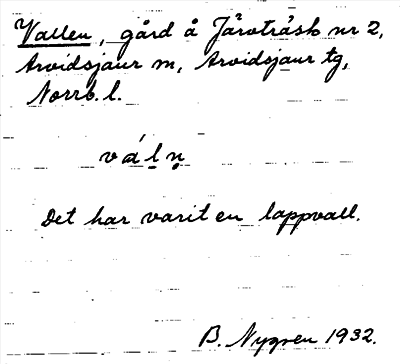 Vallen, gård å Järvträsk nr 2,
Arvidsjaur sn, Arvidsjaur tg,
Norrb. l.
válṇ
Det har varit en lappvall.
B. Nygren 1932.